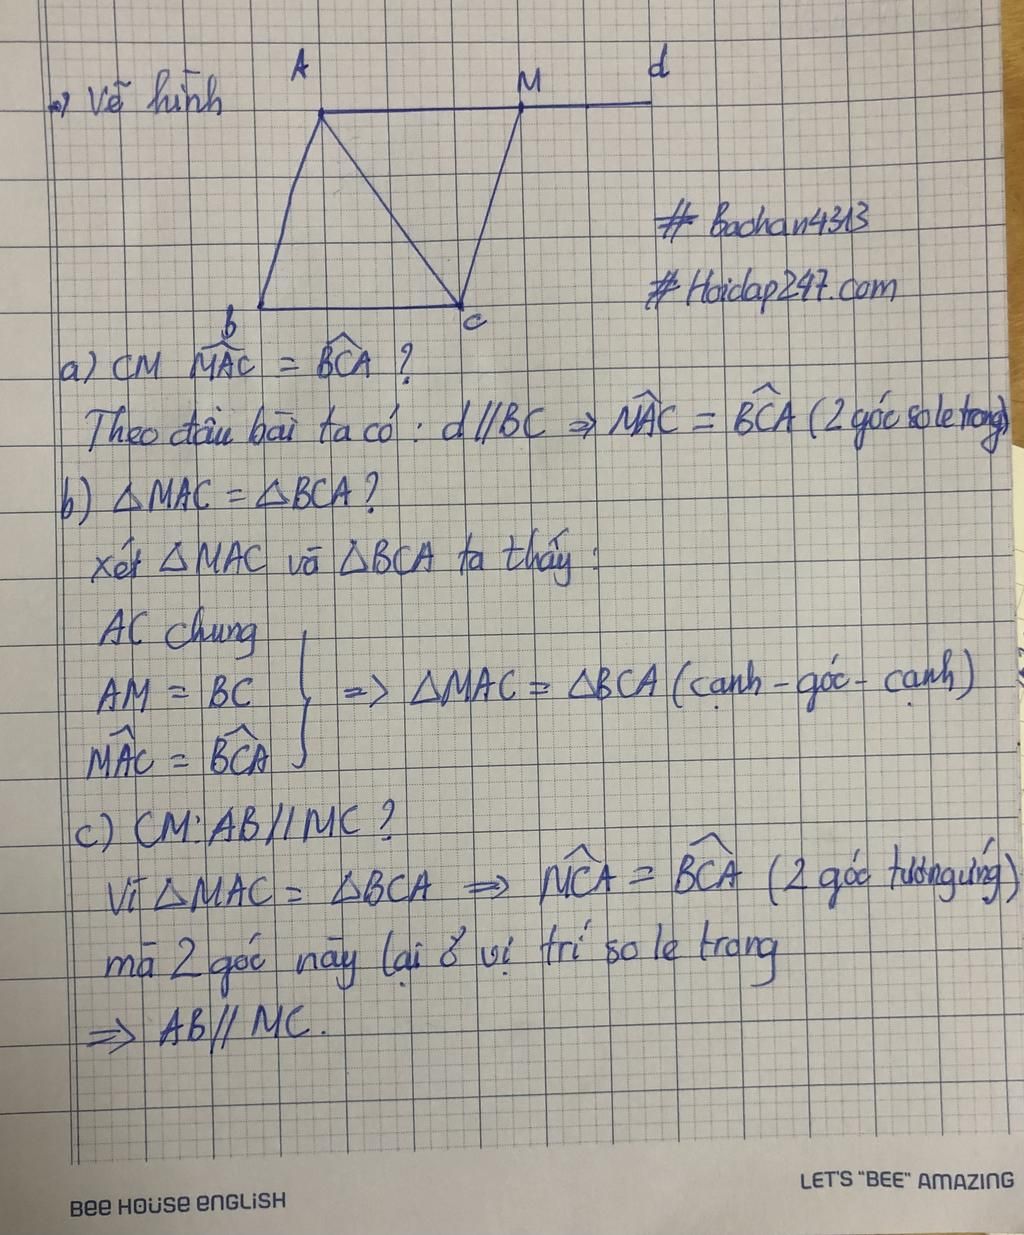 A
M
d
=> Vẽ hình
# Bachan4313
# Hoidap247.com
b
c
a) CM M̂AC = B̂CA ?
Theo đầu bài ta có : d//BC => M̂AC = B̂CA (2 góc so le trong)
b) △MAC = △BCA ?
xét △MAC và △BCA ta thấy :
AC chung
AM = BC => △MAC = △BCA (cạnh - góc - cạnh)
M̂AC = B̂CA
c) CM: AB // MC ?
Vì △MAC = △BCA => M̂CA = B̂CA (2 góc tương ứng)
mà 2 góc này lại ở vị trí so le trong
=> AB // MC.
Bee House English
LET'S "BEE" AMAZING